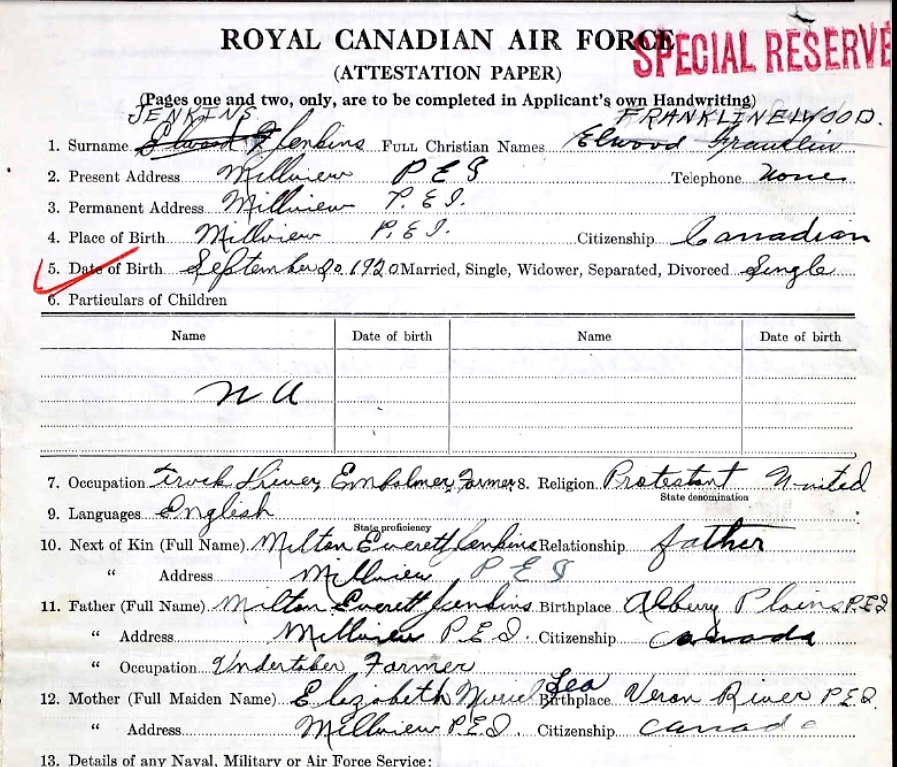 ROYAL CANADIAN AIR FORCE
SPECIAL RESERVE
(ATTESTATION PAPER)
(Pages one and two, only, are to be completed in Applicant's own Handwriting)
JENKINS. FRANKLIN ELWOOD.
1. Surname Elwood F Jenkins FULL Christian Names Elwood Franklin
2. Present Address Millview P E I Telephone None
3. Permanent Address Millview P.E.I.
4. Place of Birth Millview P.E.I. Citizenship Canadian
5. Date of Birth September 20 1920 Married, Single, Widower, Separated, Divorced Single
6. Particulars of Children
Name Date of birth Name Date of birth
N A
7. Occupation Truck Driver, Embalmer, Farmer 8. Religion Protestant United
State denomination
9. Languages English
State proficiency
10. Next of Kin (Full Name) Milton Everett Jenkins Relationship father
" Address Millview P E I
11. Father (Full Name) Milton Everett Jenkins Birthplace Albery Plains P.E.I
" Address Millview P.E.I. Citizenship Canada
" Occupation Undertaker Farmer
12. Mother (Full Maiden Name) Elizabeth Muriel Lea Birthplace Veron River P.E.I
" Address Millview P.E.I. Citizenship Canada
13. Details of any Naval, Military or Air Force Service: